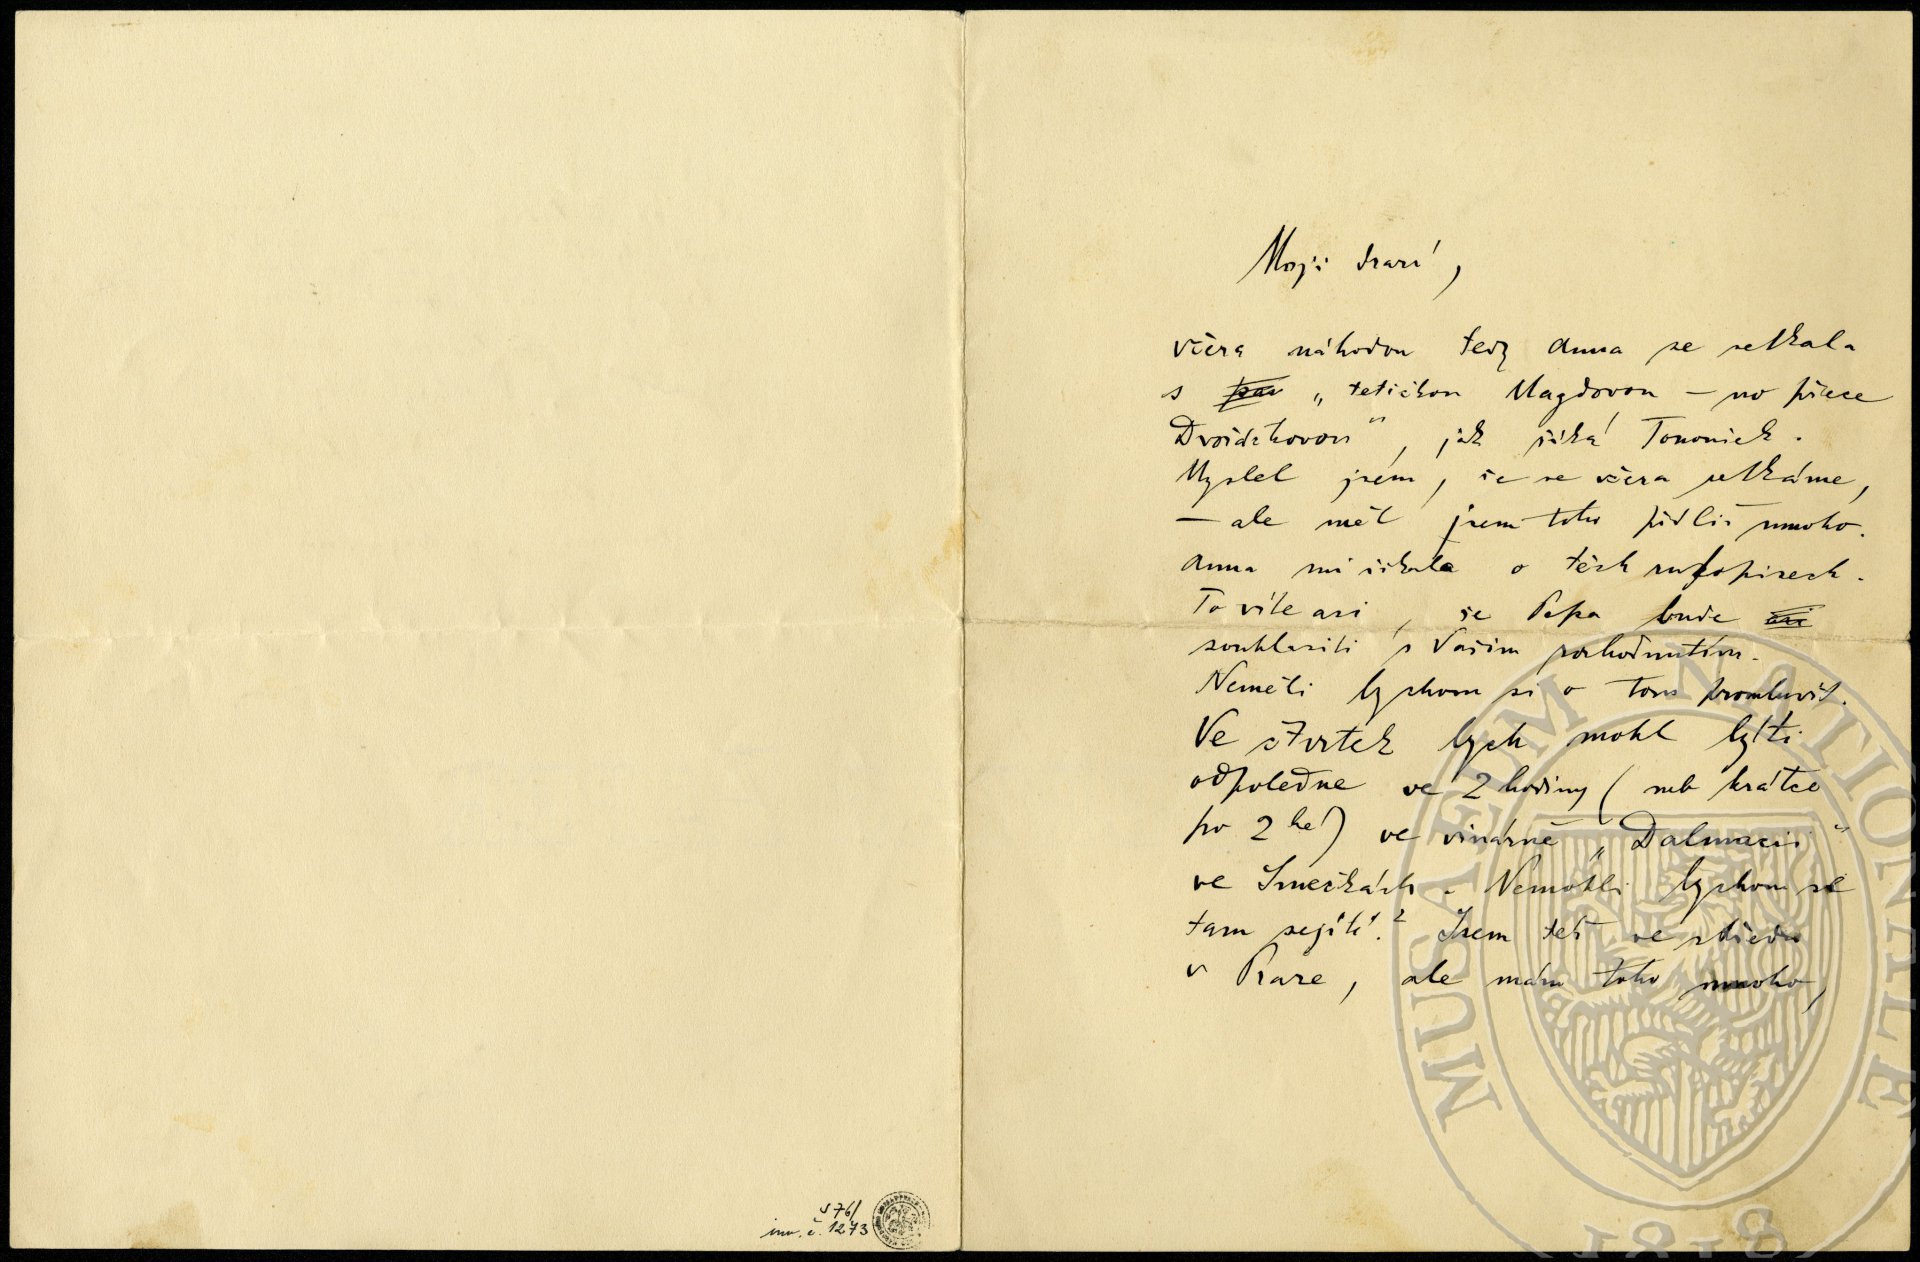 Moji drazí,
včera náhodou tedy Anna se setkala
s pan „tetičkou Magdovou – no přece
Dvořákovou", jak říká Tononiek.
Myslel jsem, že se včera setkáme,
– ale měl jsem toho příliš mnoho.
Anna mi říkala o těch rukopisech.
To víte asi, že Pepa bude
souhlasiti s Vaším rozhodnutím.
Neměli bychom si o tom promluvit.
Ve čtvrtek bych mohl býti
odpoledne ve 2 hodiny (neb krátce
po 2hé) ve vinárně „Dalmacii"
ve Smečkách. Nemohli bychom se
tam sejíti? Jsem teď ve středu
v Praze, ale mám toho mnoho,
S 76/
inv. č. 1273
MUSAEUM NATIONALE
1818